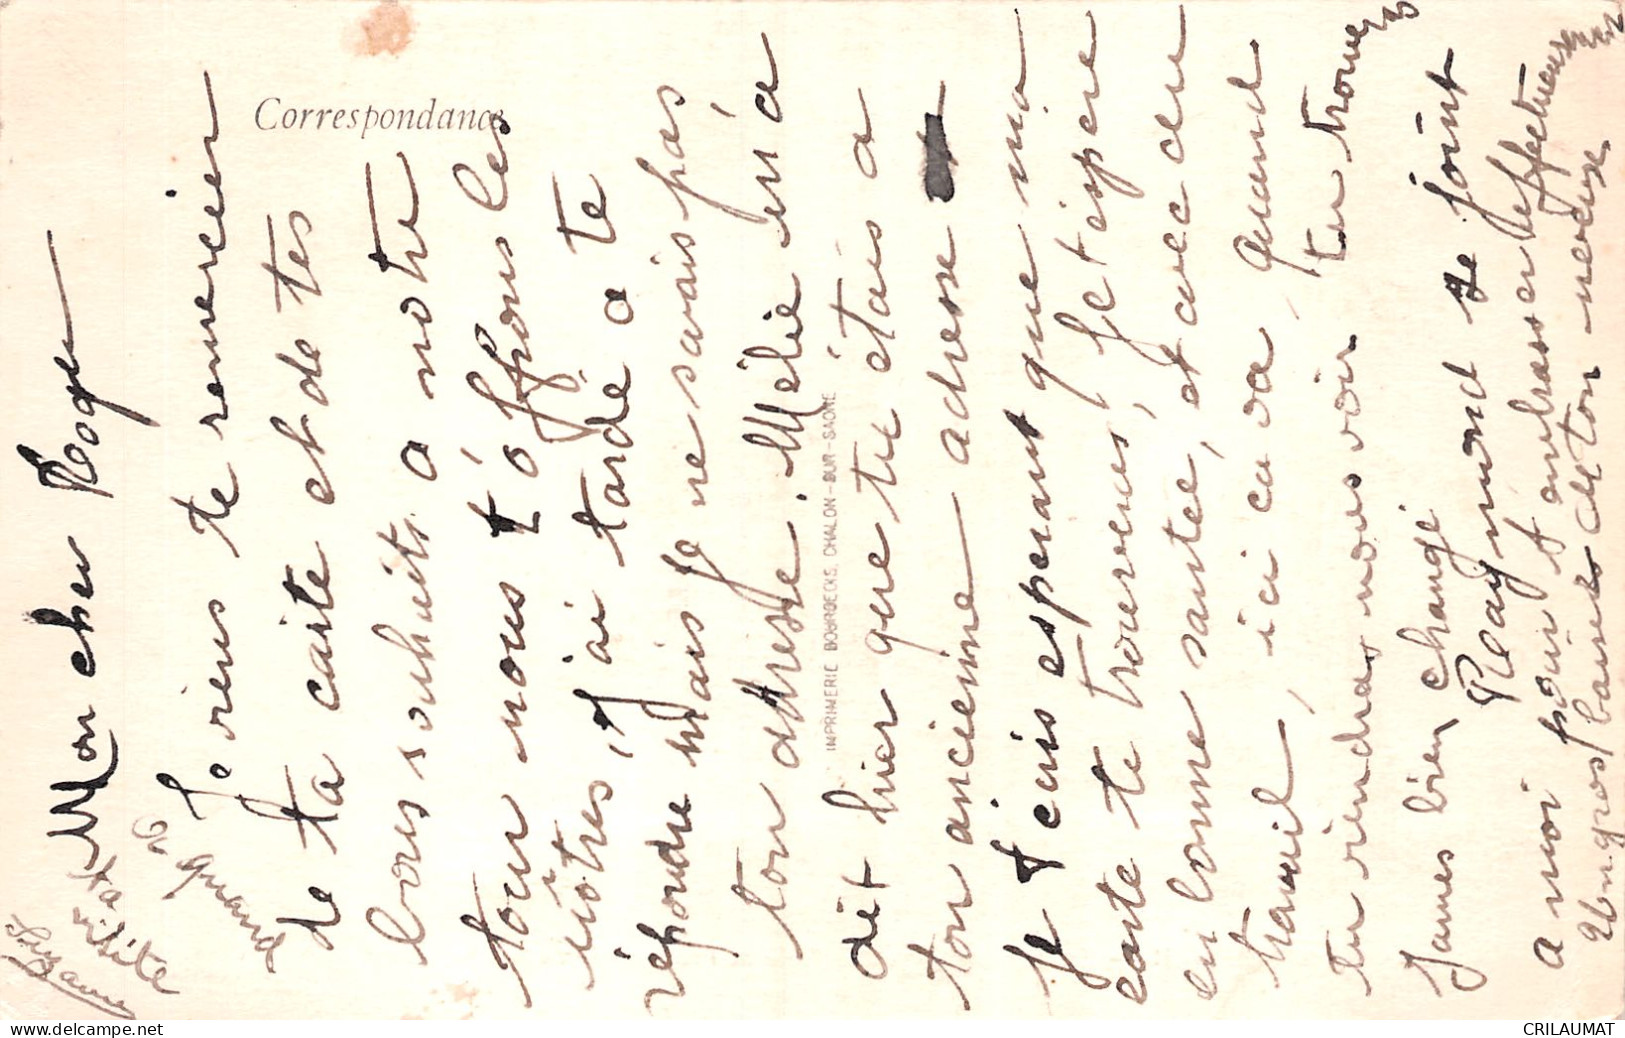 Mon cher Roger
Je viens te remercier
de ta carte et de tes
bons souhaits. a notre
tour nous t'offrons les
nôtres, J'ai tardé a te
répondre mais je ne savais pas
ton adresse. Mélie m'a
dit hier que tu étais a
ton ancienne adresse
Je t'écris espérant que ma
carte te trouvera, Je t'espère
en bonne santé, et avec du
travail, ici ca va, quand
tu viendras nous voir tu trouveras
James bien changé
Raymond se joint
a moi pour t'embrasser affectueusement
gros baisers de ton
Suzanne
a quand
ta visite
Correspondance
IMPRIMERIE BOURGEOIS, CHALON-SUR-SAONE
CRILAUMAT
www.delcampe.net